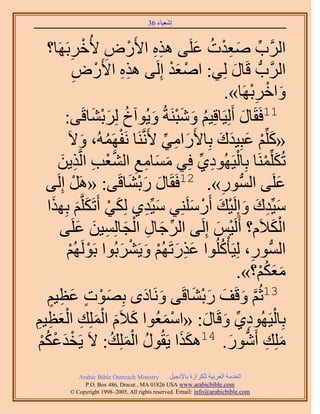 إشعياء 36
الرَّبِّ صَعِدْتُ عَلَى هذِهِ الأَرْضِ لأُخْرِبَهَا؟
الرَّبُّ قَالَ لِي: اصْعَدْ إِلَى هذِهِ الأَرْضِ
وَاخْرِبْهَا».
11فَقَالَ أَلِيَاقِيمُ وَشَبْنَةُ وَيُوآخُ لِرَبْشَاقَى:
«كَلِّمْ عَبِيدَكَ بِالأَرَامِيِّ لأَنَّنَا نَفْهَمُهُ، وَلاَ
تُكَلِّمْنَا بِالْيَهُودِيِّ فِي مَسَامِعِ الشَّعْبِ الَّذِينَ
عَلَى السُّورِ». 12فَقَالَ رَبْشَاقَى: «هَلْ إِلَى
سَيِّدِكَ وَإِلَيْكَ أَرْسَلَنِي سَيِّدِي لِكَيْ أَتَكَلَّمَ بِهذَا
الْكَلاَمِ؟ أَلَيْسَ إِلَى الرِّجَالِ الْجَالِسِينَ عَلَى
السُّورِ، لِيَأْكُلُوا عَذِرَتَهُمْ وَيَشْرَبُوا بَوْلَهُمْ
مَعَكُمْ؟».
13ثُمَّ وَقَفَ رَبْشَاقَى وَنَادَى بِصَوْتٍ عَظِيمٍ
بِالْيَهُودِيِّ وَقَالَ: «اسْمَعُوا كَلاَمَ الْمَلِكِ الْعَظِيمِ
مَلِكِ أَشُّورَ. 14هكَذَا يَقُولُ الْمَلِكُ: لاَ يَخْدَعْكُمْ
Arabic Bible Outreach Ministry الخدمة العربية للكرازة بالإنجيل
P.O. Box 486, Dracut , MA 01826 USA www.arabicbible.com
© Copyright 1998–2005, All rights reserved. Email: info@arabicbible.com